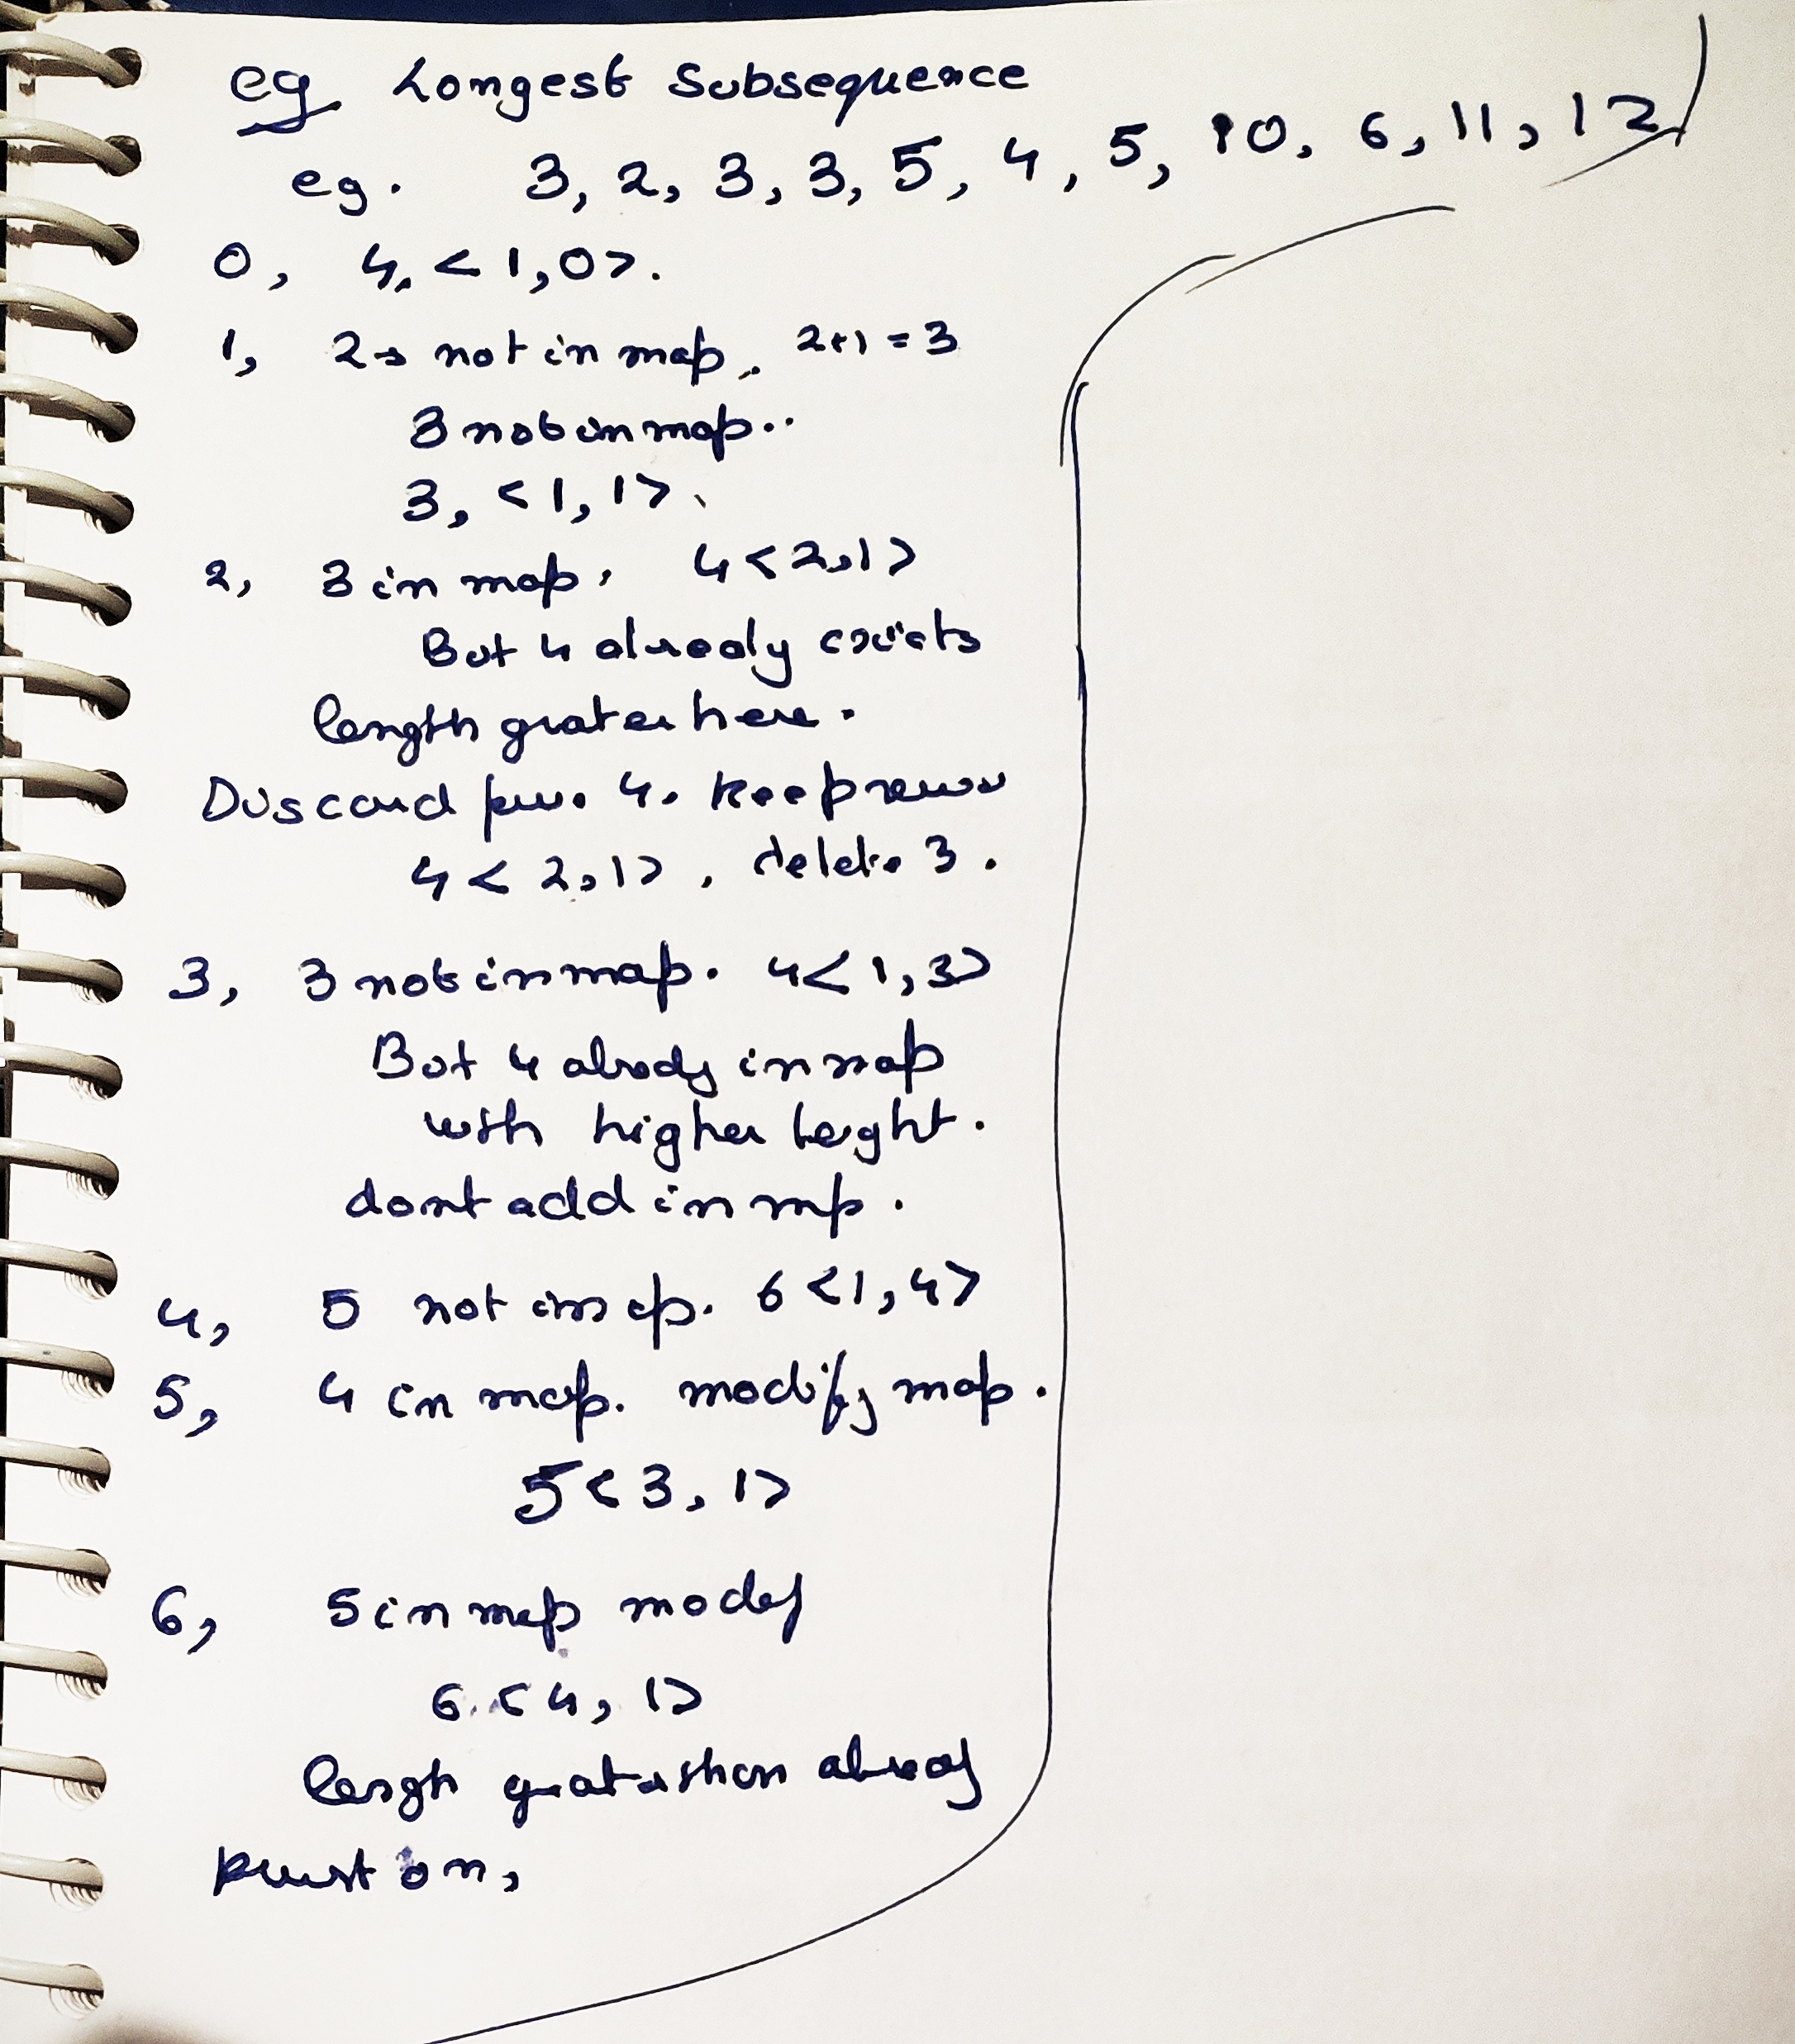 eg Longest Subsequence
eg. 3, 2, 3, 3, 5, 4, 5, 10, 6, 11, 12
0, 4, <1,0>.
1, 2→ not in map. 2+1=3
3 not in map..
3, <1, 1>.
2, 3 in map, 4<2,1>
But 4 already exists
length greater here.
Discard prev. 4. Keep new
4<2,1>, delete 3.
3, 3 not in map. 4<1,3>
But 4 alrady in map
with higher
dont add in mp.
4, 5 not in mp. 6<1,4>
5, 4 in map. modify map.
5<3, 1>
6, 5 in map
6.<4, 1>